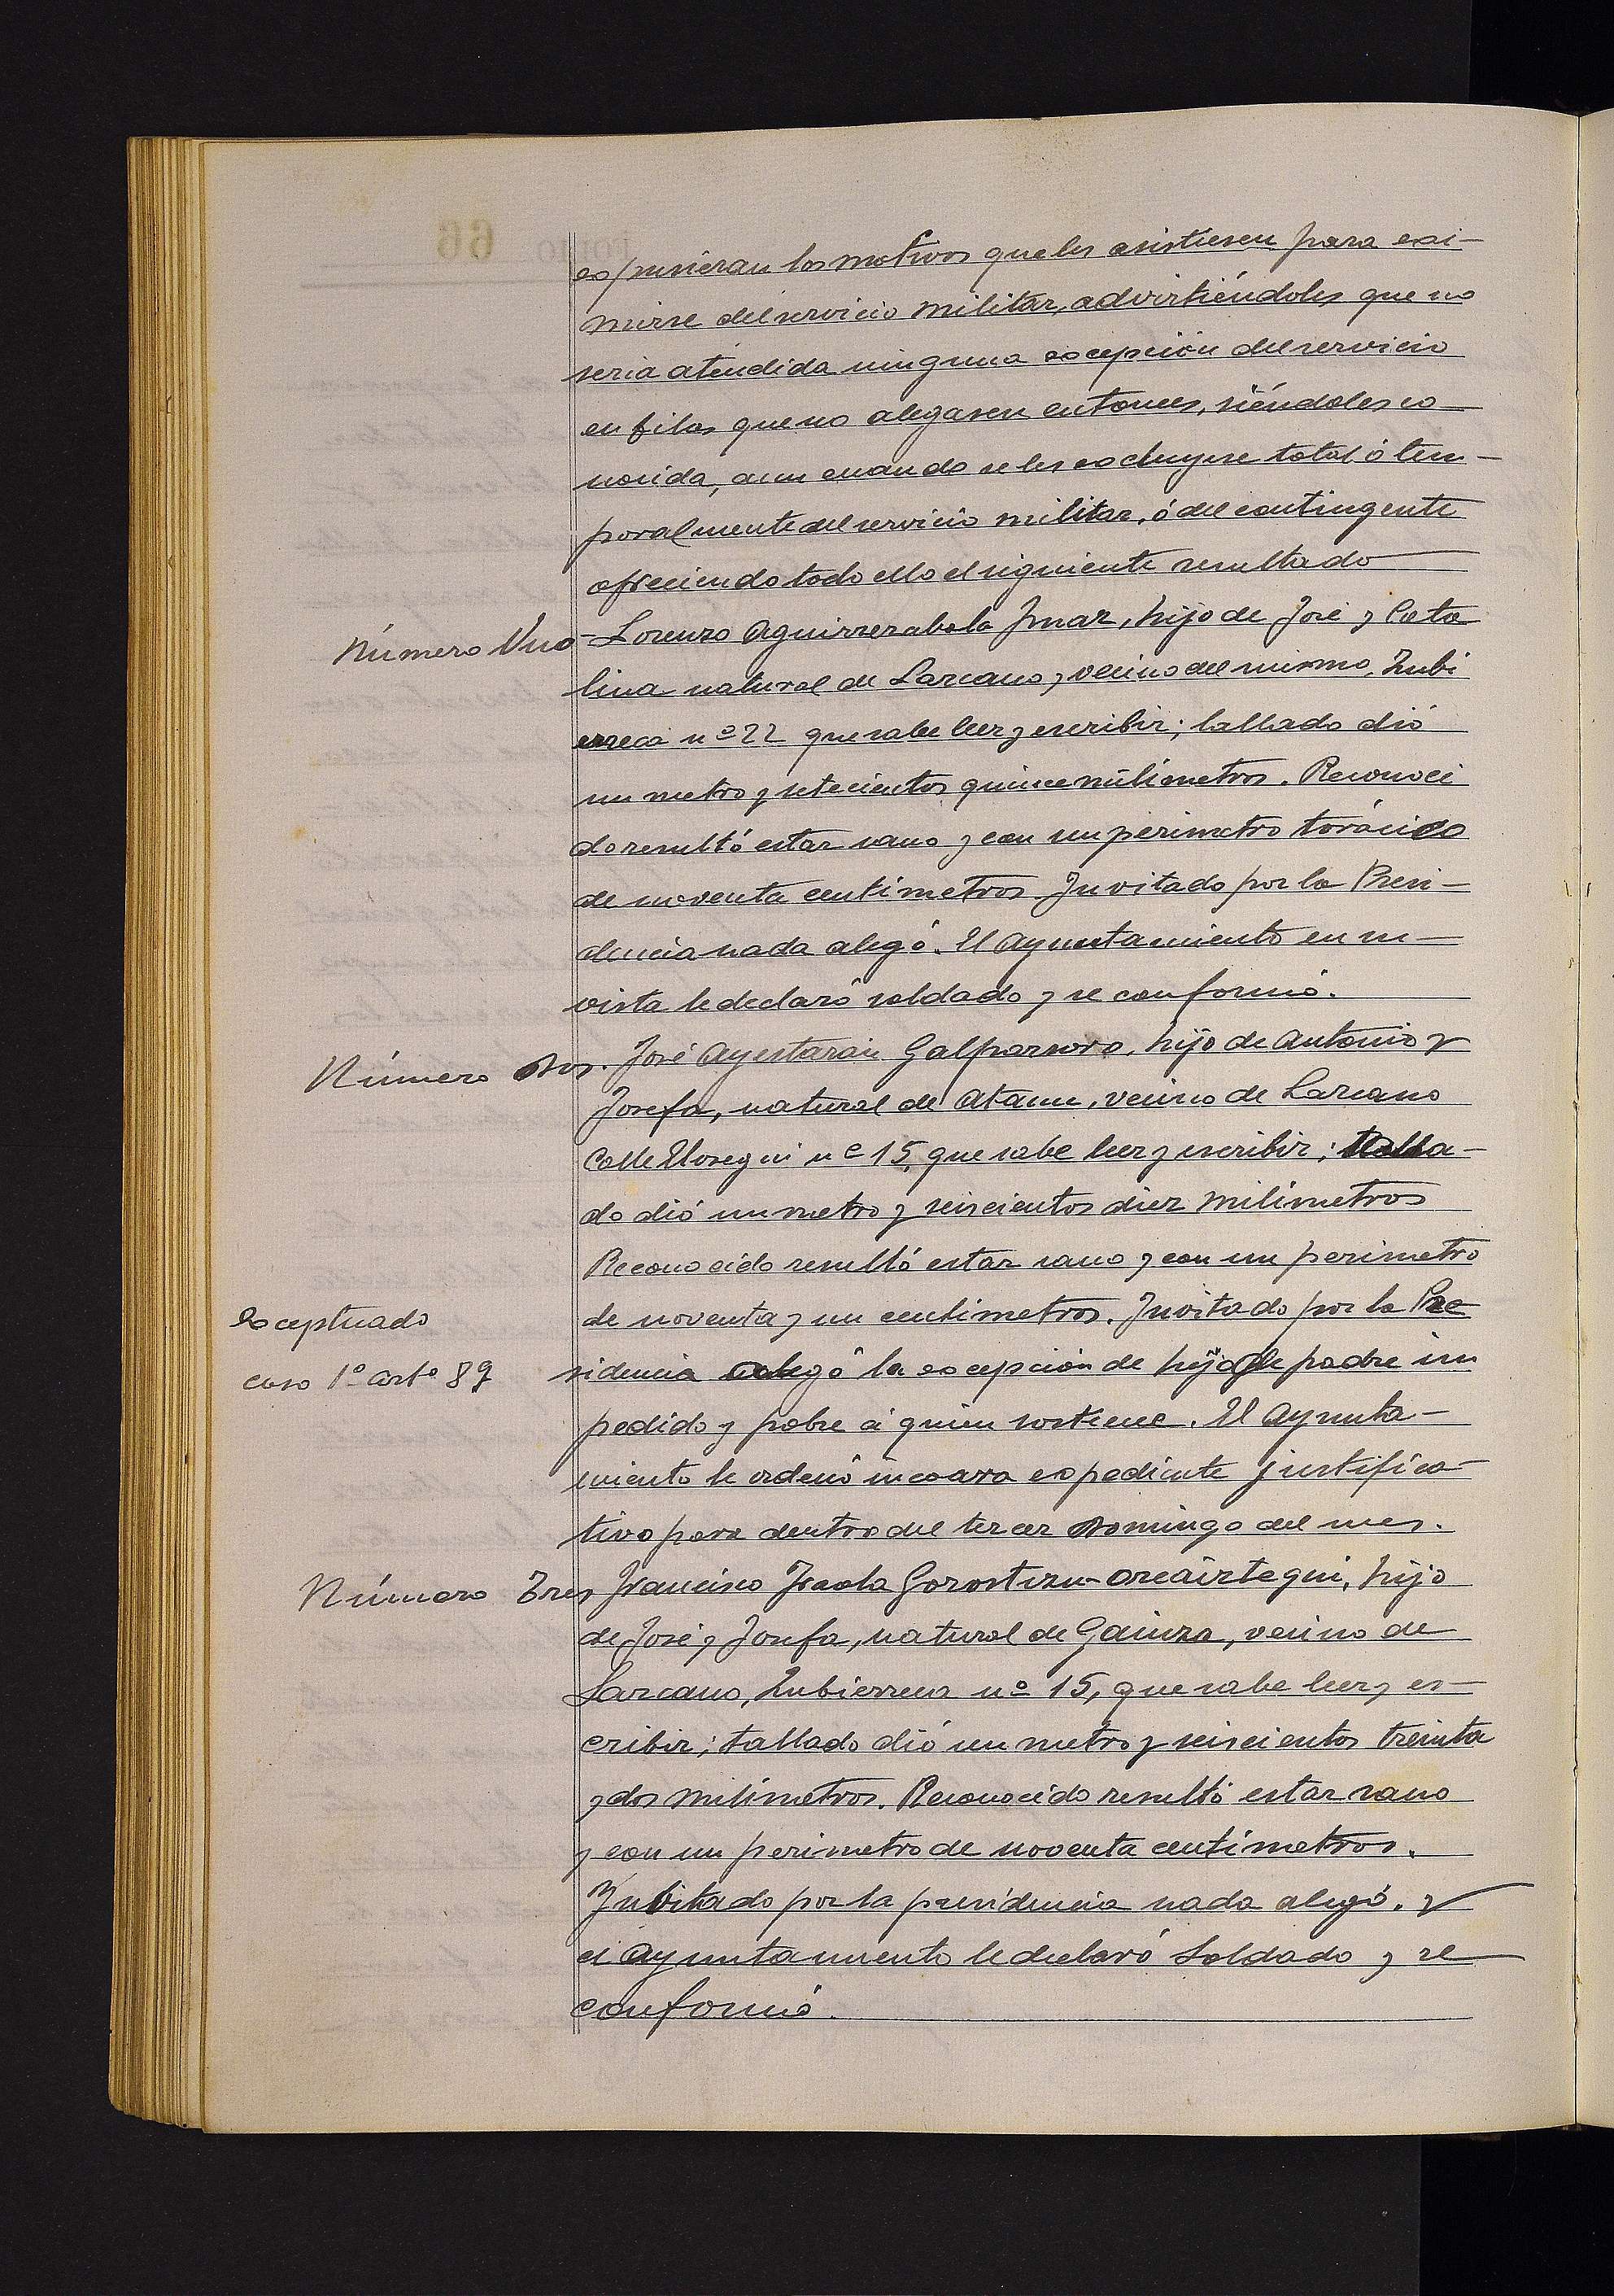 expusieran los motivos que les asistiesen para exi-
mirse del servicio militar, advirtiéndoles que no
seria atendida ninguna excepción del servicio
en filas que no alegasen entonces, siéndoles co-
nocida, aun cuando se les excluyese total ó tem-
poralmente del servicio militar, ó del contingente
ofreciendo todo ello el siguiente resultado
Número Uno - Lorenzo Aguirrezabala Imaz, hijo de José y Cata
lina natural de Lazcano y vecino del mismo, Zubi
erreca nº 22 que sabe leer y escribir; tallado dió
un metro y setecientos quince milimetros. Reconoci
do resultó estar sano y con un perimetro torácico
de noventa centimetros. Invitado por la Presi-
dencia nada alegó. El Ayuntamiento en su
vista le declaró soldado y se conformó.
Número Dos. José Ayestarán Galparsoro, hijo de Antonio y
Josefa, natural de Ataun, vecino de Lazcano
Calle Elosegui nº 15, que sabe leer y escribir; talla-
do dió un metro y seiscientos diez milimetros
Reconocido resultó estar sano y con un perimetro
Exceptuado
de noventa y un centimetros. Invitado por la Pre
caso 1º artº 89
sidencia alegó la excepción de hijo de padre im
pedido y pobre á quien sostiene. El Ayunta-
miento le ordenó incoara expediente justifica-
tivo para dentro del tercer Domingo del mes.
Número Tres Francisco Iraola Gorostizu-Orcaiztegui, hijo
de José y Josefa, natural de Gainza, vecino de
Lazcano, Zubierreca nº 15, que sabe leer y es-
cribir; tallado dió un metro y seiscientos treinta
y dos milimetros. Reconocido resultó estar sano
y con un perimetro de noventa centimetros.
Invitado por la presidencia nada alegó. y
el Ayuntamiento le declaró Soldado y se
conformó.